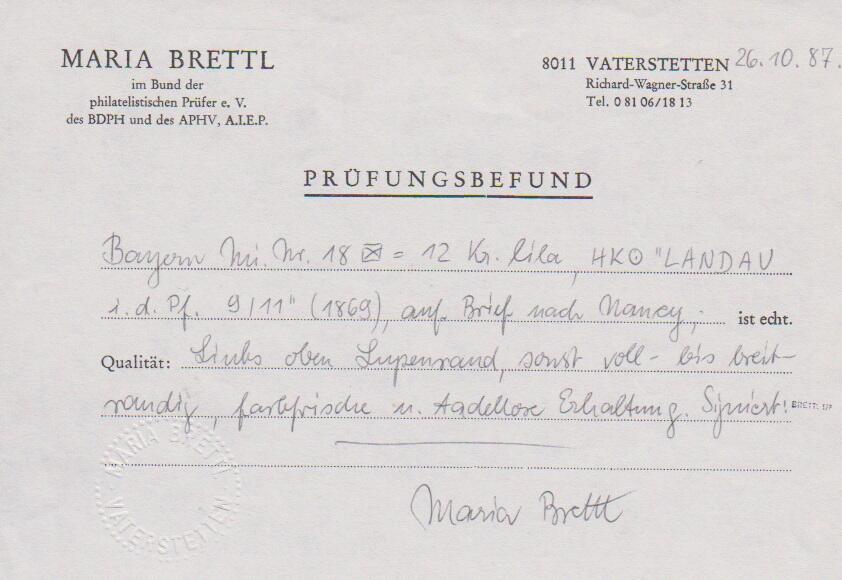 MARIA BRETTL
im Bund der
philatelistischen Prüfer e. V.
des BDPH und des APHV, A.I.E.P.
8011 VATERSTETTEN 26.10.87.
Richard-Wagner-Straße 31
Tel. 0 81 06/18 13
PRÜFUNGSBEFUND
Bayern Mi. Nr. 18 ✉ = 12 Kr. lila, HKO "LANDAU
i. d. Pf. 9/11" (1869), auf Brief nach Nancy, ist echt.
Qualität: Links oben Lupenrand, sonst voll- bis breit-
randig, farbfrische u. tadellose Erhaltung. Signiert! BRETTL
MARIA BRETTL
VATERSTETTEN
Maria Brettl